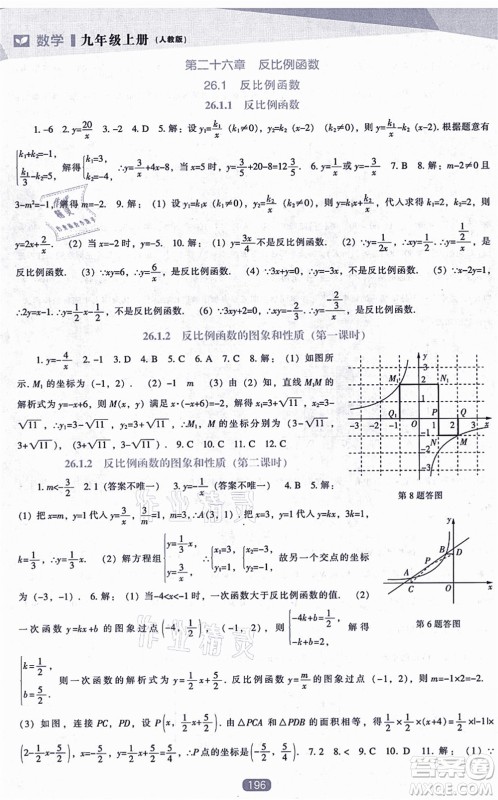 数学 九年级上册（人教版）
第二十六章 反比例函数
26.1 反比例函数
26.1.1 反比例函数
1. -6 2. y=20/x 3. -2 4. D 5. 解：设 y₁=k₁/x (k₁≠0)，y₂=k₂(x-2) (k₂≠0)，则 y=k₁/x-k₂(x-2). 根据题意有
{k₁+k₂=-1, k₁/3-k₂=5, 解得{k₁=3, k₂=-4, ∴y=3/x+4x-8，当 x=5 时，y=3/5+20-8=12 3/5. 6. y=3/x 7. B 8. 解：m-2≠0 且
3-m²=-1，解得 m=-2. 9. 解：(1) 设 y₁=k₁x (k₁≠0)，y₂=k₂/x (k₂≠0)，则 y=k₁x+k₂/x，代人求得 k₁=2，k₂=2，则
y=2x+2/x. (2) 当 x=-2 时，y=-5. 10. 解：(1) y=3x/4 不是反比例函数. (2) ∵y=1/2x，∴xy=1/2，是
反比例函数. (3) ∵xy=6，∴y=6/x，是反比例函数. (4) ∵3x+y=0，∴y=-3x，不是反比例函数. (5) ∵x-2y=1，
∴2y=x-1，∴y=1/2x-1/2，不是反比例函数. (6) ∵3xy+2=0，∴xy=-2/3，是反比例函数.
26.1.2 反比例函数的图象和性质（第一课时）
1. y=-4/x 2. -1 3. D 4. C 5. A 6. C 7. B 8. 解：(1) 如图所
示，M₁ 的坐标为 (-1，2). (2) -1 m (3) 由 (2) 知，直线 M₁M 的
解析式为 y=-x+6，则 M(x，y) 满足 x·(-x+6)=-2，解得 x₁=3+√11，
x₂=3-√11，∴y₁=3-√11，y₂=3+√11，∴M₁，M 的坐标分别为 (3-√11，
3+√11)，(3+√11，3-√11). 9. C 10. C 11. D 12. C
第 8 题答图
26.1.2 反比例函数的图象和性质（第二课时）
1. m<-3/2 2. 1（答案不唯一） 3. y=-1/x（答案不唯一） 4. B 5. 解：
(1) 把 x=m，y=1 代人 y=3/x，1=3/m，m=3，∴A (3，1). 把 x=3，y=1 代人 y=kx，
k=1/3，∴y=1/3x. (2) 解方程组{y=1/3x, y=3/x, ∴{x₁=3, y₁=1, {x₂=-3, y₂=-1, 故另一个交点的坐标
为 (-3，-1). 6. 解：(1) 当-4<x<-1 时，一次函数大于反比例函数的值. (2)
第 6 题答图
一次函数 y=kx+b 的图象过点 (-4，1/2)，(-1，2)，则 {-4k+b=1/2, -k+b=2, 解得
{k=1/2, b=5/2, 一次函数的解析式为 y=1/2x+5/2. 反比例函数 y=m/x 的图象过点 (-1，2)，m=-1×2=-2.
(3) 如图，连接 PC，PD，设 P(x，1/2x+5/2). 由△PCA 和△PDB 的面积相等，得 1/2×1/2×(x+4)=1/2×|-1|×
(2-1/2x-5/2)，x=-5/2，y=1/2x+5/2=5/4，∴P 点的坐标是 (-5/2，5/4). 7. 2 8. < 9. C 10. D 11. 解：(1) ∵
196
作业精灵
作业精灵
答案圈
MXQE.COM